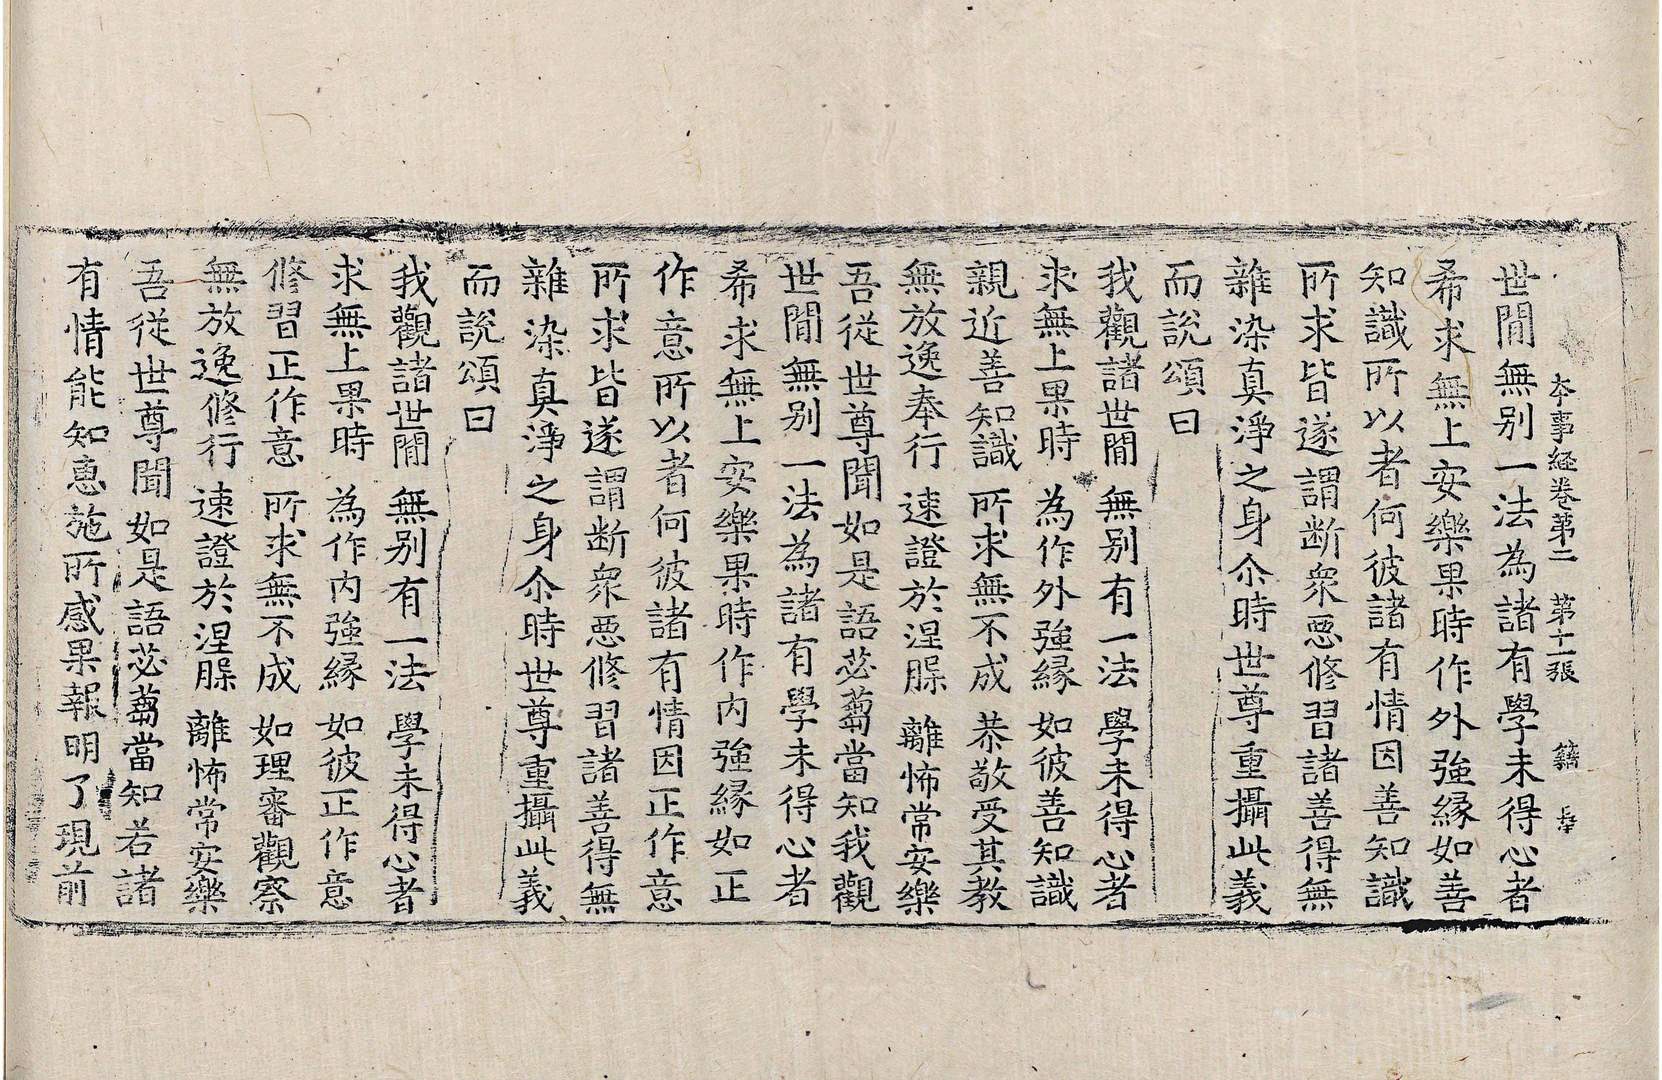 本事経卷第二 第十一張 籍
世閒無别一法為諸有學未得心者
希求無上安樂果時作外強縁如善
知識所以者何彼諸有情因善知識
所求皆遂謂断衆惡修習諸善得無
雜染真淨之身尒時世尊重攝此義
而說頌曰
我觀諸世閒 無别有一法 學未得心者
求無上果時 為作外強縁 如彼善知識
親近善知識 所求無不成 恭敬受其教
無放逸奉行 速證於涅槃 離怖常安樂
吾從世尊聞如是語苾蒭當知我觀
世閒無别一法為諸有學未得心者
希求無上安樂果時作内強縁如正
作意所以者何彼諸有情因正作意
所求皆遂謂断衆惡修習諸善得無
雜染真淨之身尒時世尊重攝此義
而說頌曰
我觀諸世閒 無别有一法 學未得心者
求無上果時 為作内強縁 如彼正作意
修習正作意 所求無不成 如理審觀察
無放逸修行 速證於涅槃 離怖常安樂
吾從世尊聞如是語苾蒭當知若諸
有情能知惠施所感果報明了現前